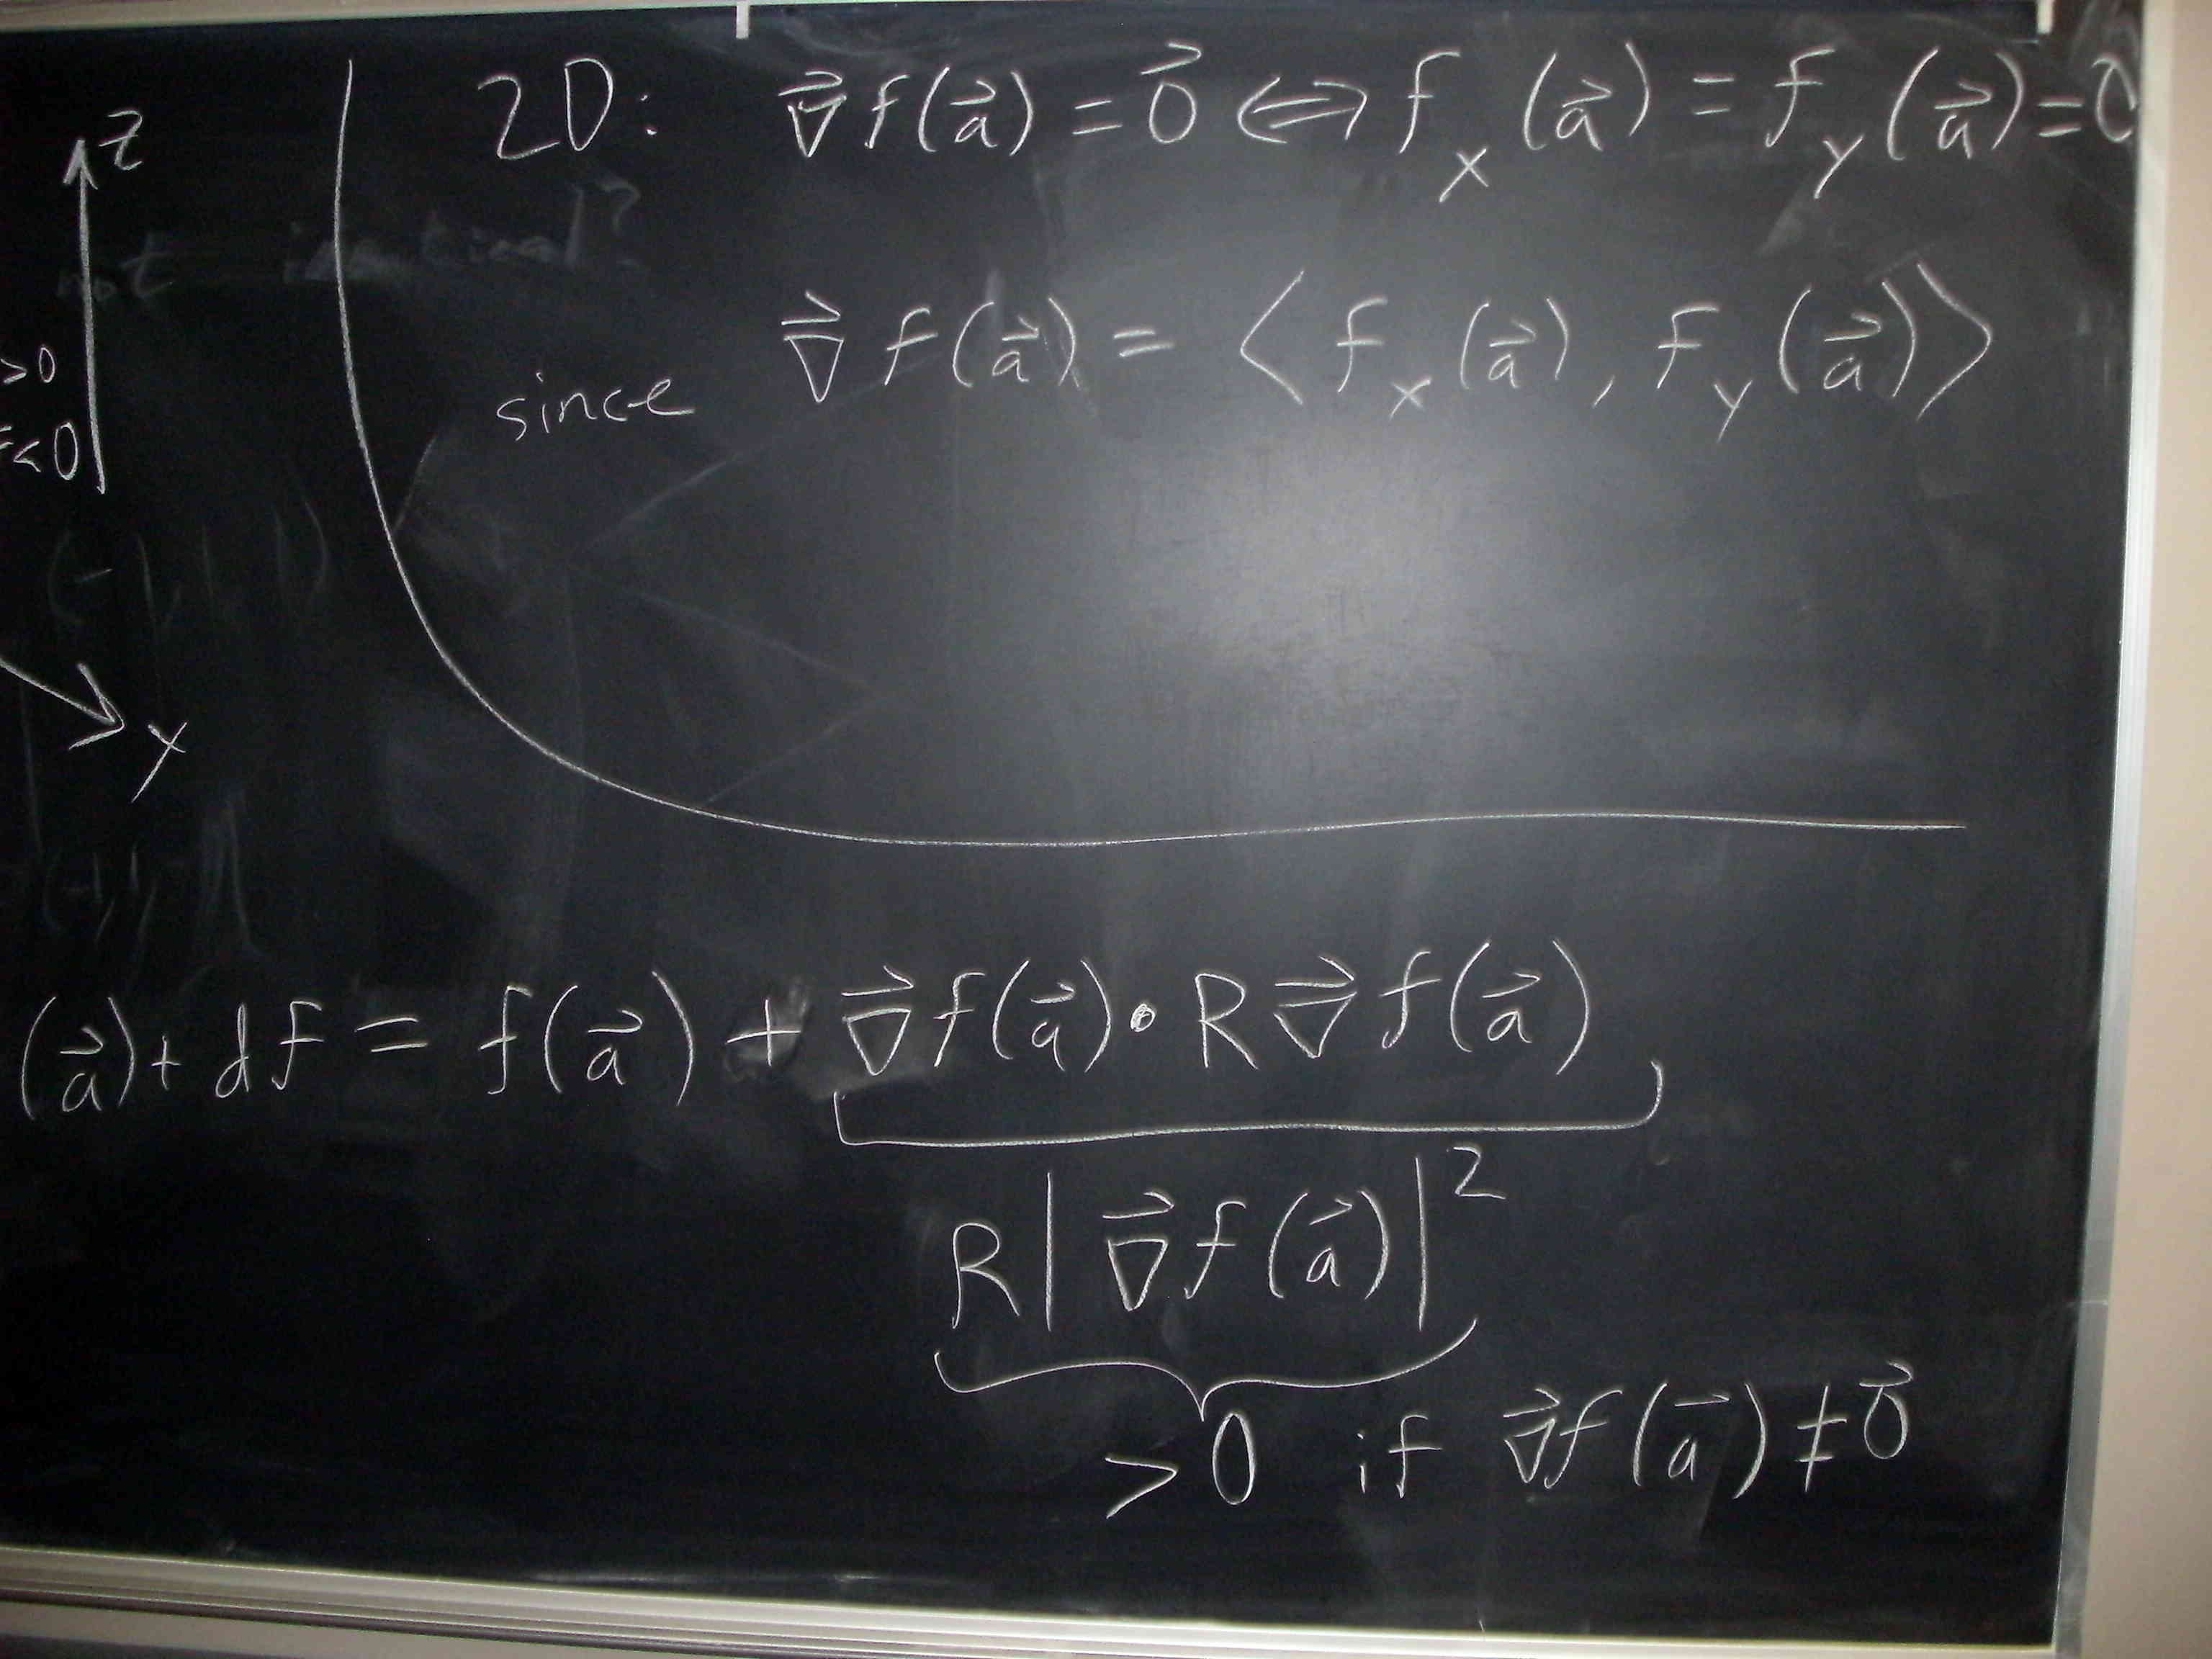 2D: ∇⃗f(a⃗) = 0⃗ ⟺ f_x(a⃗) = f_y(a⃗) = 0
z
since ∇⃗f(a⃗) = ⟨f_x(a⃗), f_y(a⃗)⟩
>0
<0
y
(a⃗) + df = f(a⃗) + ∇⃗f(a⃗) • R∇⃗f(a⃗)
R|∇⃗f(a⃗)|²
>0 if ∇⃗f(a⃗) ≠ 0⃗